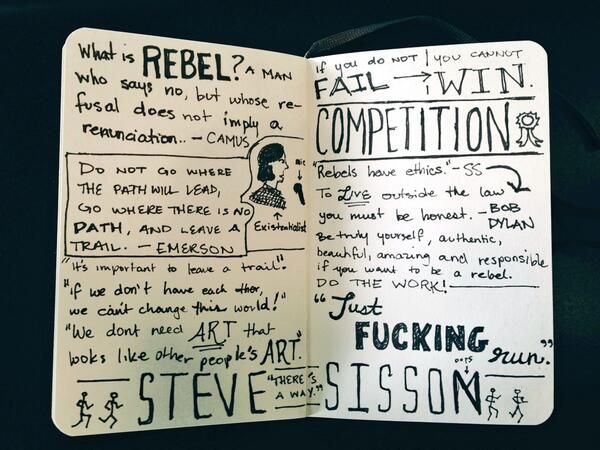 What is REBEL? A MAN
who says no, but whose re-
fusal does not imply a
renunciation.. - CAMUS
DO NOT GO WHERE
THE PATH WILL LEAD,
GO WHERE THERE IS NO
PATH, AND LEAVE A
TRAIL. - EMERSON
mic
Existentialist
"It's important to leave a trail."
"If we don't have each other,
we can't change this world!"
"We dont need ART that
looks like other people's ART."
STEVE
"THERE'S
A WAY."
If you do NOT | you CANNOT
FAIL → WIN.
COMPETITION
"Rebels have ethics." - SS
To LIVE outside the law
you must be honest. - BOB
DYLAN
Be truly yourself, authentic,
beautiful, amazing and responsible
if you want to be a rebel.
DO THE WORK!
"Just
FUCKING
run."
SISSON